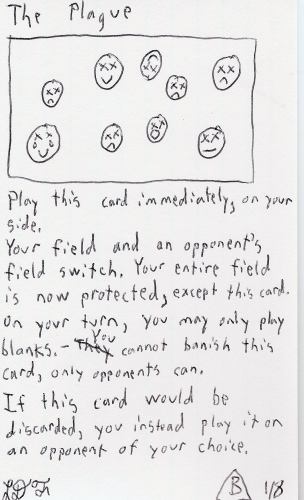 The Plague
Play this card immediately, on your
side.
Your field and an opponent's
field switch. Your entire field
is now protected, except this card.
On your turn, you may only play
blanks. - You cannot banish this
card, only opponents can.
If this card would be
discarded, you instead play it on
an opponent of your choice.
B 1/8